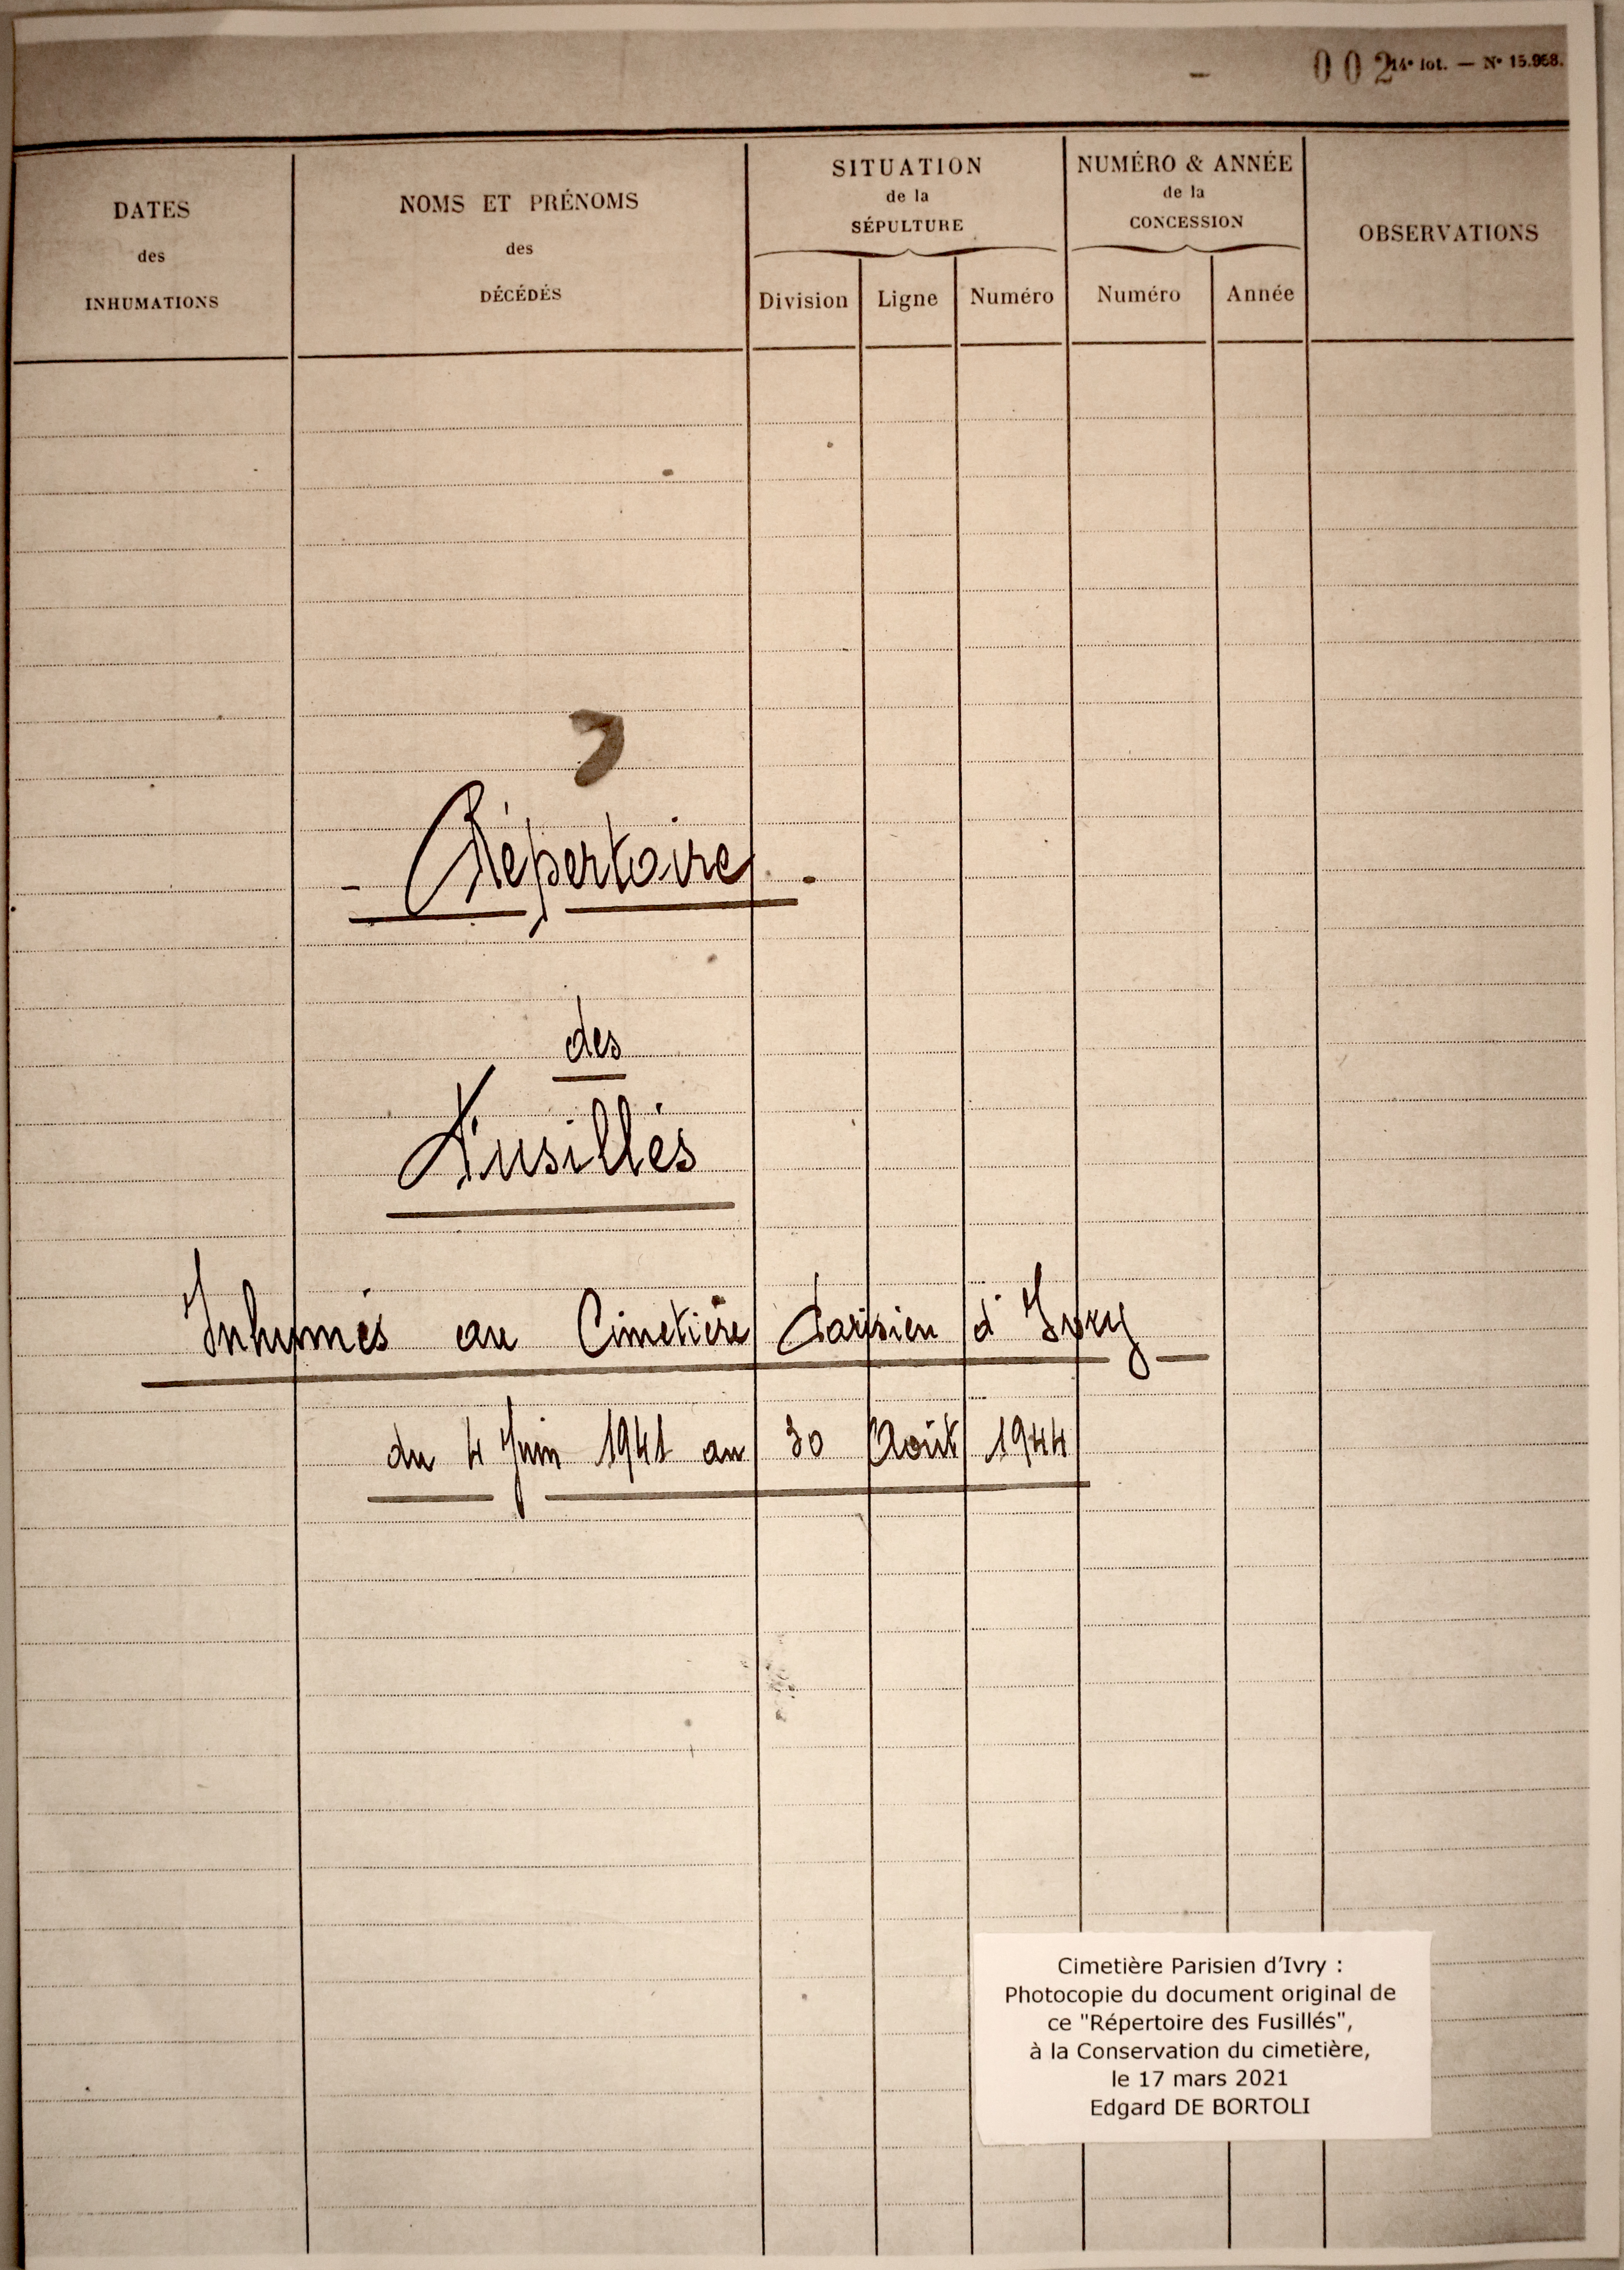 002
14e lot. — No 15.958.
DATES
des
INHUMATIONS
NOMS ET PRÉNOMS
des
DÉCÉDÉS
SITUATION
de la
SÉPULTURE
Division
Ligne
Numéro
NUMÉRO & ANNÉE
de la
CONCESSION
Numéro
Année
OBSERVATIONS
- Répertoire -
des
Fusillés
Inhumés au Cimetière Parisien d'Ivry
du 4 Juin 1941 au 30 Août 1944
Cimetière Parisien d'Ivry :
Photocopie du document original de
ce "Répertoire des Fusillés",
à la Conservation du cimetière,
le 17 mars 2021
Edgard DE BORTOLI